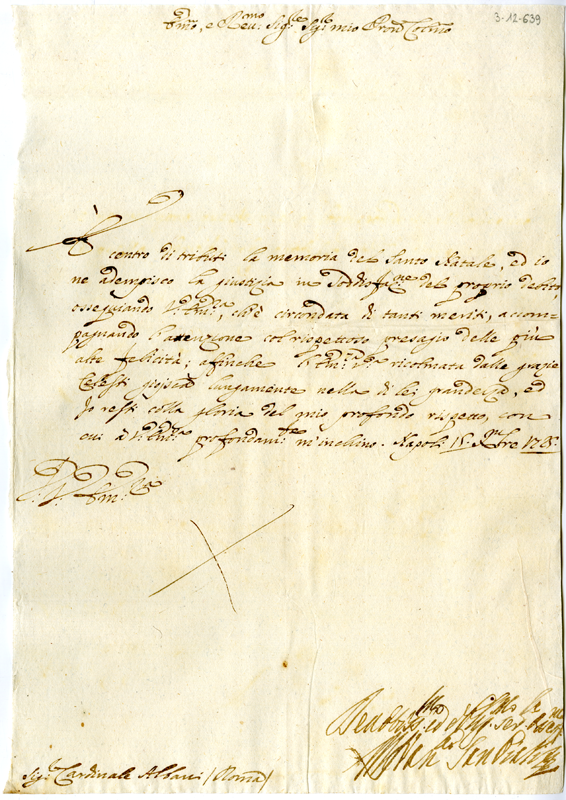 3-12-639
Em.mo, e Rev.mo Sig.re Sig.re mio Pron Col.mo
È centro di tributi la memoria del Santo Natale, ed io
ne adempisco la giustizia in del proprio debito,
ossequiando V. Em.za, ch'è circondata di tanti meriti, accom-
pagnando l'attenzione col rispettoso presagio delle più
alte felicità; affinche l'Em.za V.ra ricolmata dalle grazie
Celesti gioisca lungamente nella di lei grandezza, ed
Io resti colla gloria del mio profondo rispetto, con
cui à V. Em.za profondam.te m'inchino. Napoli 15 Xmbre
D. V. Em.za
Sig.r Cardinale Albani (Roma)